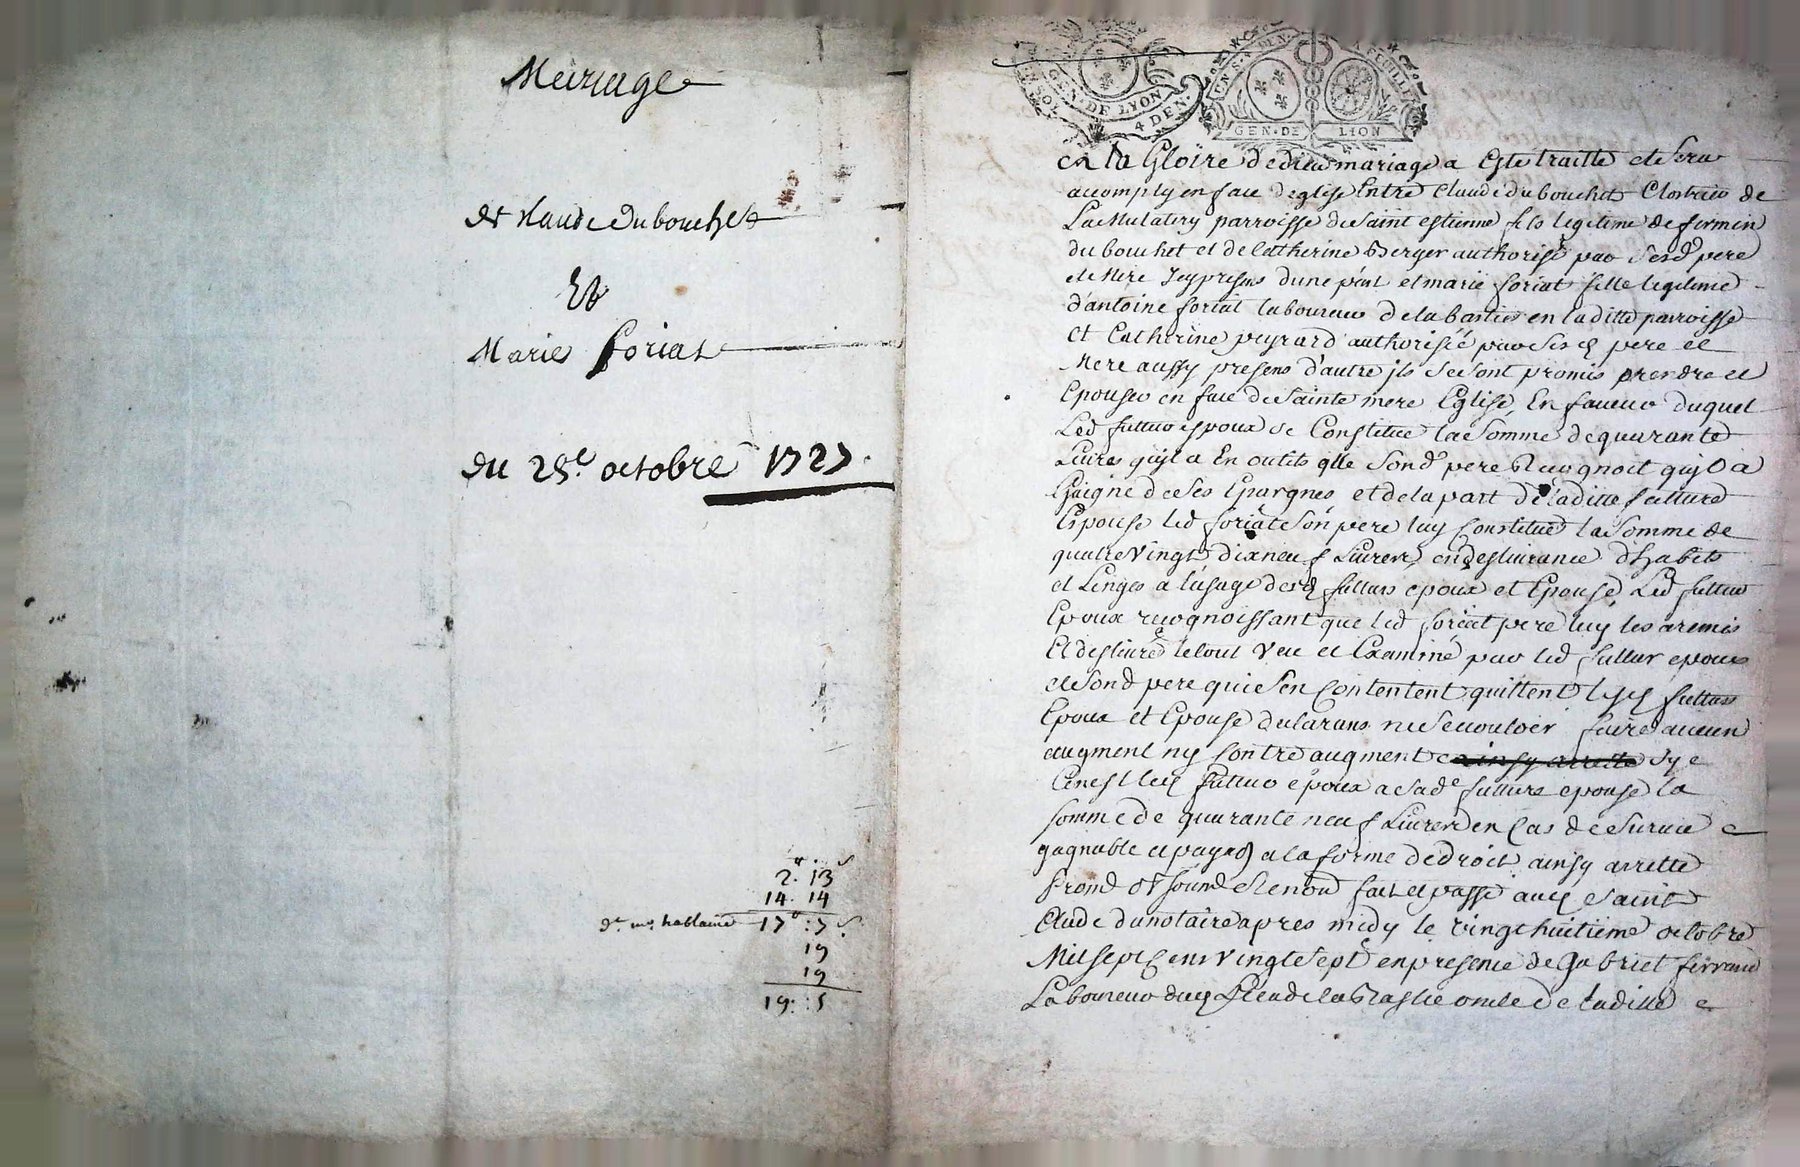 Mariage
de Claude Dubouchet
Et
Marie foriat
du 28.e octobre 1727.
2. 13
14. 14
17 : 7
19
19
19 : 5
GEN. DE LYON.
4 DEN.
GEN. DE LION
a la Gloire de dieu mariage a Este traitté et sera
acomply en face deglise Entre Claude dubouchet Cloutrier de
La Mulatiry parroisse de Saint estienne fils legitime de firmin
du bouchet et de Catherine Berger authorisé par Sesd pere
et Mere Icy presens dune part et marie foriat fille legitime
d'antoine foriat laboureur de la bastie en laditte parroisse
et Catherine peyrard authorisée par Sesd pere et
Mere aussy presens d'autre jls se sont promis prendre et
Epouser en face de Sainte mere Eglise, En faveur duquel
Led futtur espoux se Constitue la Somme de quarante
Livres quil a En outils qlle Sond pere Recognoit quil a
Gaigné de ses Epargnes et de la part de laditte future
Espouse led foriat Son pere luy Constitue la Somme de
quatre Vingt dixneuf Livres, en deslivrance dhabits
et Linges a lusage desd futturs epoux et Epouse Led futtur
Epoux recognoissant que led foriat pere luy les a remis
Et deslivré le tout Veu et Examiné par led futtur epoux
et Sond pere qui sen Contentent quittent lesd futturs
Epoux et Epouse declarans ne se vouloir faire aucun
augment ny Contre augment ainsy arretté Sy e
Cenest led futtur epoux a sade future epouse la
somme de quarante neuf Livres en Cas de Survie
gagnable et payab a la forme de droit ainsy arretté
fait et passé aud Saint
Etude du notaire apres midy le vingt huitieme octobre
Mil sept Cens Vingt Sept en presence de Gabriel ferrand
Laboureur dud Lieu de la Bastie oncle de laditte